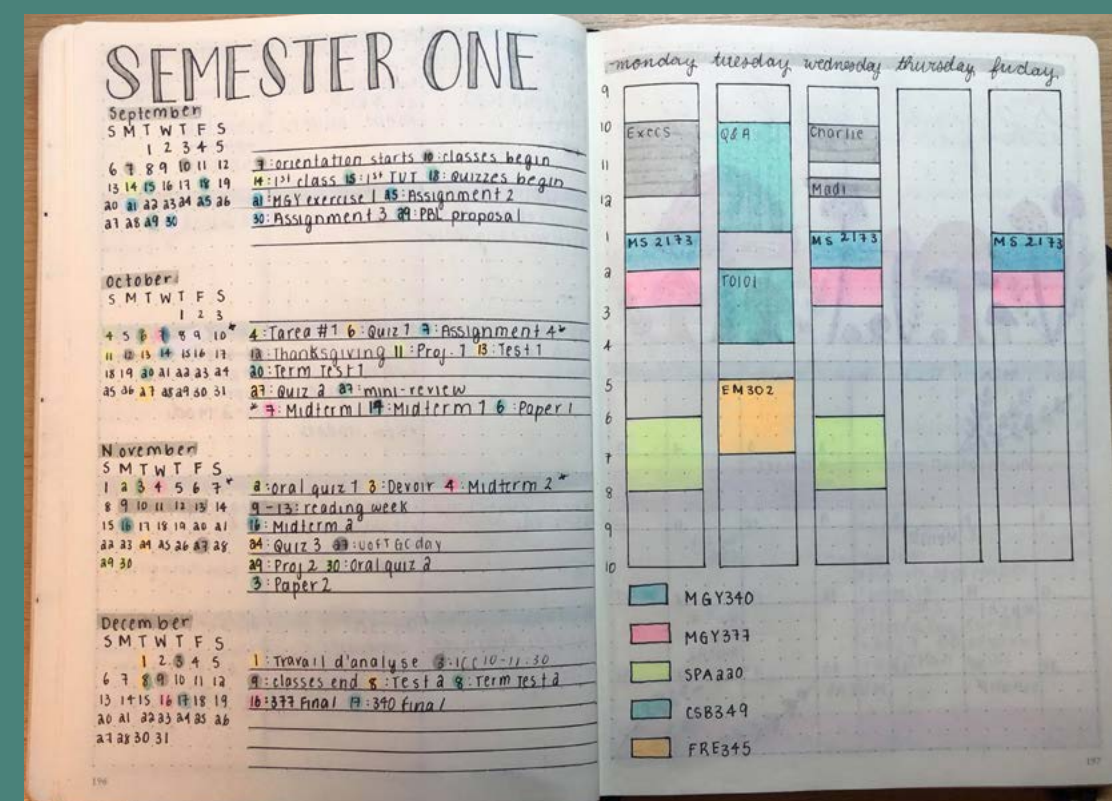 SEMESTER ONE
September
S M T W T F S
1 2 3 4 5
6 7 8 9 10 11 12
13 14 15 16 17 18 19
20 21 22 23 24 25 26
27 28 29 30
7: orientation starts 10: classes begin
14: 1st class 15: 1st TUT 18: Quizzes begin
21: MGY exercise 1 25: Assignment 2
30: Assignment 3 29: PBL proposal
October
S M T W T F S
1 2 3
4 5 6 7 8 9 10*
11 12 13 14 15 16 17
18 19 20 21 22 23 24
25 26 27 28 29 30 31
4: Tarea #1 6: Quiz 1 7: Assignment 4*
12: Thanksgiving 11: Proj. 1 13: Test 1
20: Term Test 1
27: Quiz 2 27: mini-review
* 7: Midterm 1 14: Midterm 1 6: Paper 1
November
S M T W T F S
1 2 3 4 5 6 7*
8 9 10 11 12 13 14
15 16 17 18 19 20 21
22 23 24 25 26 27 28
29 30
2: oral quiz 1 3: Devoir 4: Midterm 2*
9-13: reading week
16: Midterm 2
24: Quiz 3 27: UofT GC day
29: Proj 2 30: Oral quiz 2
3: Paper 2
December
S M T W T F S
1 2 3 4 5
6 7 8 9 10 11 12
13 14 15 16 17 18 19
20 21 22 23 24 25 26
27 28 30 31
1: Travail d'analyse 3: ICC 10-11:30
9: classes end 8: Test 2 8: Term Test 2
16: 377 Final 17: 340 final
196
monday tuesday wednesday thursday friday
9
10 Execs Q&A Charlie
11
Madi
12
1 MS 2173 MS 2173 MS 2173
2 TO101
3
4
5 EM302
6
7
8
9
10
MGY340
MGY377
SPA220
CSB349
FRE345
197